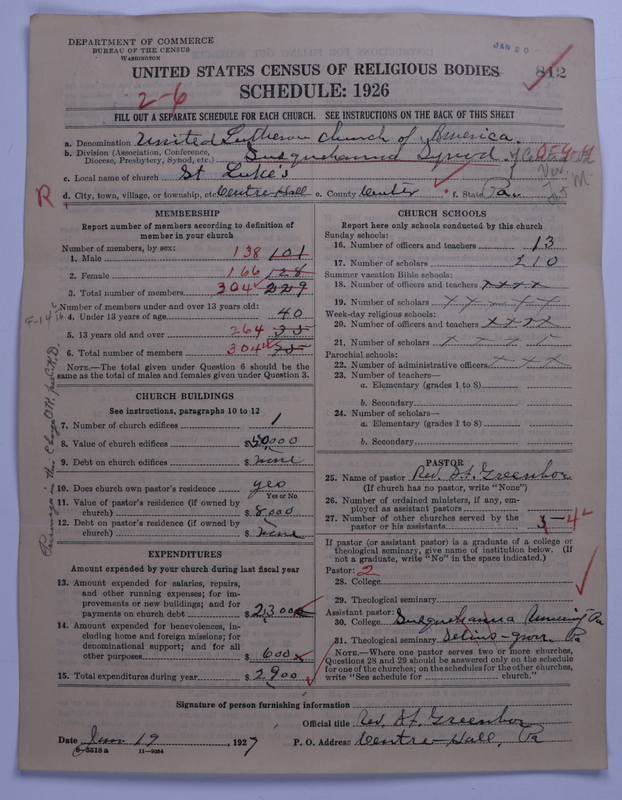 DEPARTMENT OF COMMERCE
BUREAU OF THE CENSUS
WASHINGTON
JAN 20
UNITED STATES CENSUS OF RELIGIOUS BODIES
812
SCHEDULE: 1926
2-6
FILL OUT A SEPARATE SCHEDULE FOR EACH CHURCH. SEE INSTRUCTIONS ON THE BACK OF THIS SHEET
a. Denomination United Lutheran Church of America
b. Division (Association, Conference, Diocese, Presbytery, Synod, etc.) Susquehanna Synod of
c. Local name of church St Luke's
R
d. City, town, village, or township, etc. Centre Hall e. County Centre f. State Pa.
MEMBERSHIP
Report number of members according to definition of
member in your church
Number of members, by sex:
1. Male 138 101
2. Female 166 128
3. Total number of members 304 229
Number of members under and over 13 years old:
4. Under 13 years of age 40
5. 13 years old and over 264 35
6. Total number of members 304 75
NOTE.—The total given under Question 6 should be the
same as the total of males and females given under Question 3.
CHURCH BUILDINGS
See instructions, paragraphs 10 to 12
7. Number of church edifices 1
8. Value of church edifices $50,000
9. Debt on church edifices $ None
10. Does church own pastor's residence yes
Yes or No
11. Value of pastor's residence (if owned by
church) $8000
12. Debt on pastor's residence (if owned by
church) $ None
EXPENDITURES
Amount expended by your church during last fiscal year
13. Amount expended for salaries, repairs,
and other running expenses; for im-
provements or new buildings; and for
payments on church debt $2300
14. Amount expended for benevolences, in-
cluding home and foreign missions; for
denominational support; and for all
other purposes $600
15. Total expenditures during year $2900
CHURCH SCHOOLS
Report here only schools conducted by this church
Sunday schools:
16. Number of officers and teachers 13
17. Number of scholars 210
Summer vacation Bible schools:
18. Number of officers and teachers xxxx
19. Number of scholars
Week-day religious schools:
20. Number of officers and teachers xxxx
21. Number of scholars
Parochial schools:
22. Number of administrative officers xxx
23. Number of teachers—
a. Elementary (grades 1 to 8)
b. Secondary
24. Number of scholars—
a. Elementary (grades 1 to 8)
b. Secondary
PASTOR
25. Name of pastor Rev.
(If church has no pastor, write "None")
26. Number of ordained ministers, if any, em-
ployed as assistant pastors
27. Number of other churches served by the
pastor or his assistants 3 - 4
If pastor (or assistant pastor) is a graduate of a college or
theological seminary, give name of institution below. (If
not a graduate, write "No" in the space indicated.)
Pastor: 2
28. College
29. Theological seminary
Assistant pastor:
30. College Susquehanna University Pa
31. Theological seminary Pa
NOTE.—Where one pastor serves two or more churches,
Questions 28 and 29 should be answered only on the schedule
for one of the churches; on the schedules for the other churches,
write "See schedule for church."
Signature of person furnishing information
Official title Rev.
Date Jan 19, 1927
P. O. Address Centre Hall, Pa
6-5518a